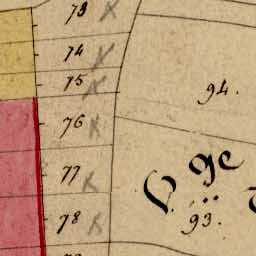 73 x
74 x
75 x
94.
76 x
77 x
78 x
93.